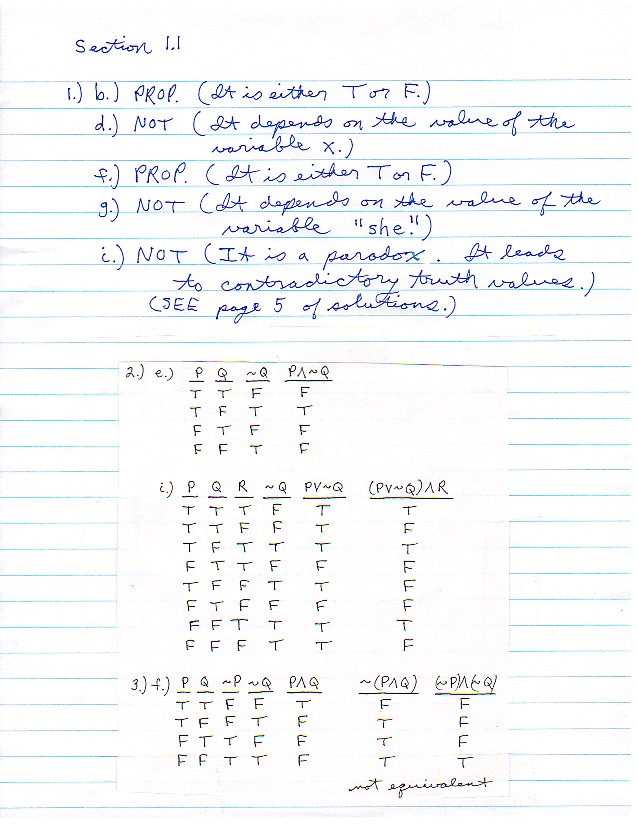 Section 1.1
1.) b.) PROP. (It is either T or F.)
d.) NOT (It depends on the value of the
variable x.)
f.) PROP. (It is either T or F.)
g.) NOT (It depends on the value of the
variable "she!")
i.) NOT (It is a paradox. It leads
to contradictory truth values.)
(SEE page 5 of solutions.)
2.) e.) P Q ~Q P∧~Q
T T F F
T F T T
F T F F
F F T F
i.) P Q R ~Q P∨~Q (P∨~Q)∧R
T T T F T T
T T F F T F
T F T T T T
F T T F F F
T F F T T F
F T F F F F
F F T T T T
F F F T T F
3.) f.) P Q ~P ~Q P∧Q ~(P∧Q) (~P)∧(~Q)
T T F F T F F
T F F T F T F
F T T F F T F
F F T T F T T
not equivalent